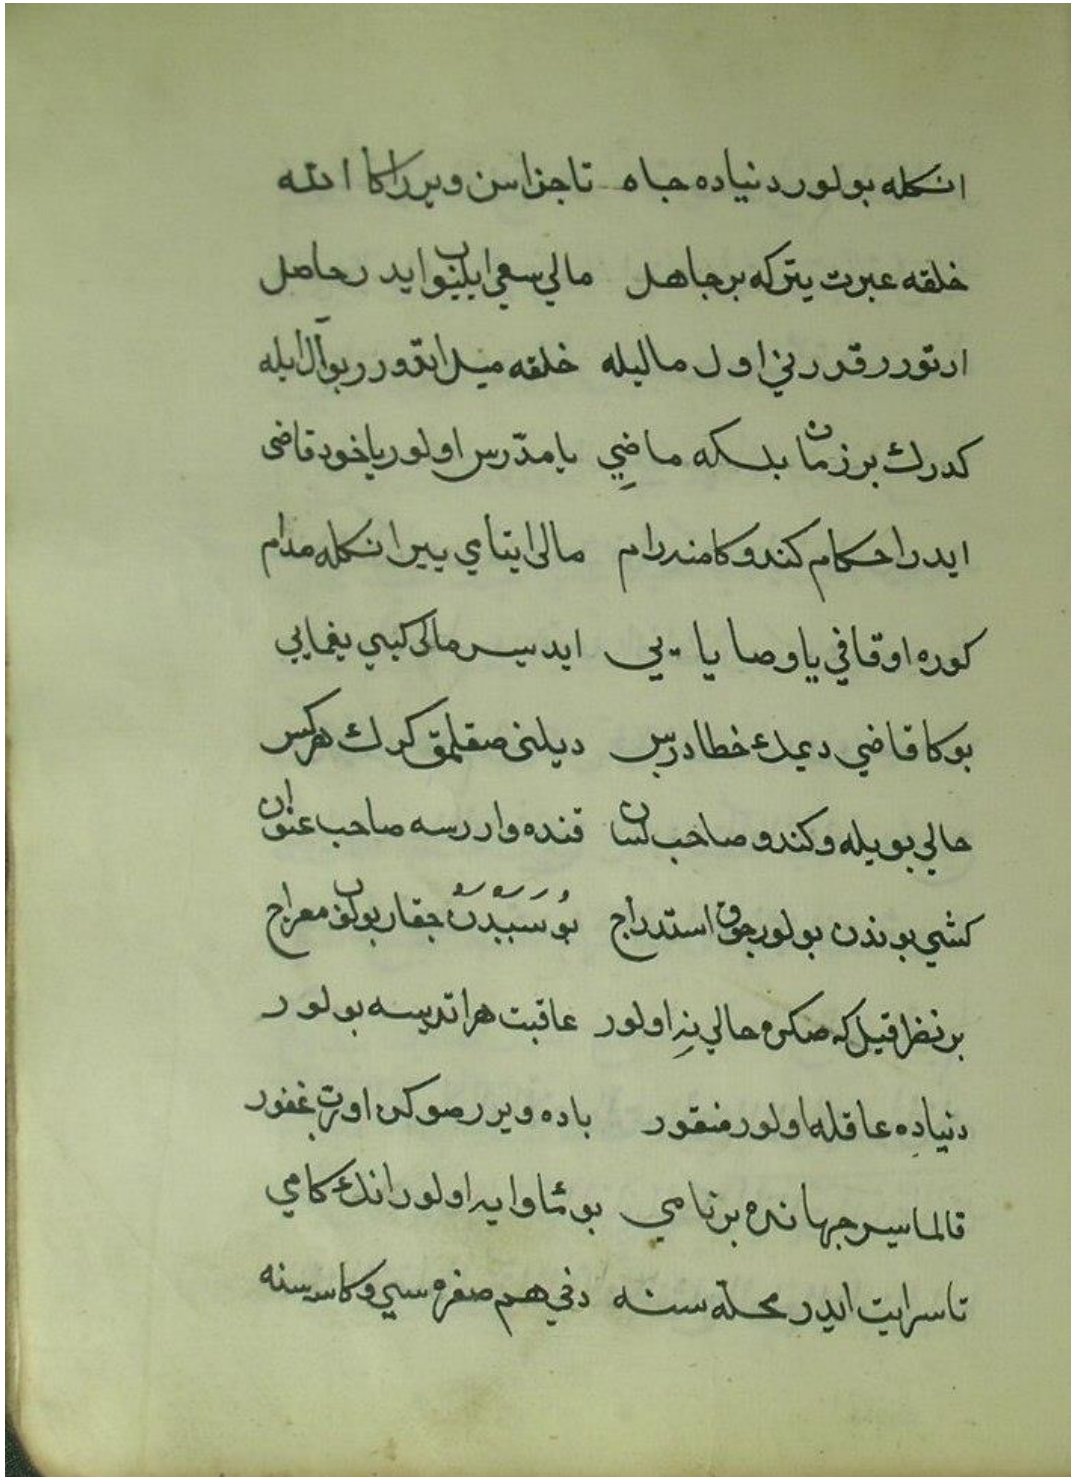 انكله بولور دنياده جاه تا جزاسن ويرر اكا الله
خلقه عبرت يتر كه بر جاهل مالي سعي ايلينوب ايدر حاصل
ارتورر قدرني اول ماليله خلقه ميل ايتدورر بو آل ايله
كدرك بر زمان بلسكه ماضيي يا مدرّس اولور يا خود قاضي
ايدر احكام كندوكا مندرام مالى ايتامي يير انكله مدام
كوره اوقافي يا وصايايي ايديسر مالى كبي يغمايي
بوكا قاضي ديمك خطادر بس ديلنى صقلمق كرك هركس
حالي بويله و كندو صاحب لسان قنده واررسه صاحب عنوان
كشي بوندن بولور چوق استدراج بو سببدن جقار بولق معراج
بر نظر قيل كه صكره حالي نه اولور عاقبت هر اتديسه بولور
دنياده عاقله اولور منقور باده ويرر صوكى اورت غفور
قالماسير جهانده بر نامي بو ئماوايه اولور انك كامي
تا سرايت ايدر محلّه سنه دخي هم صفره سي و كاسه سنه